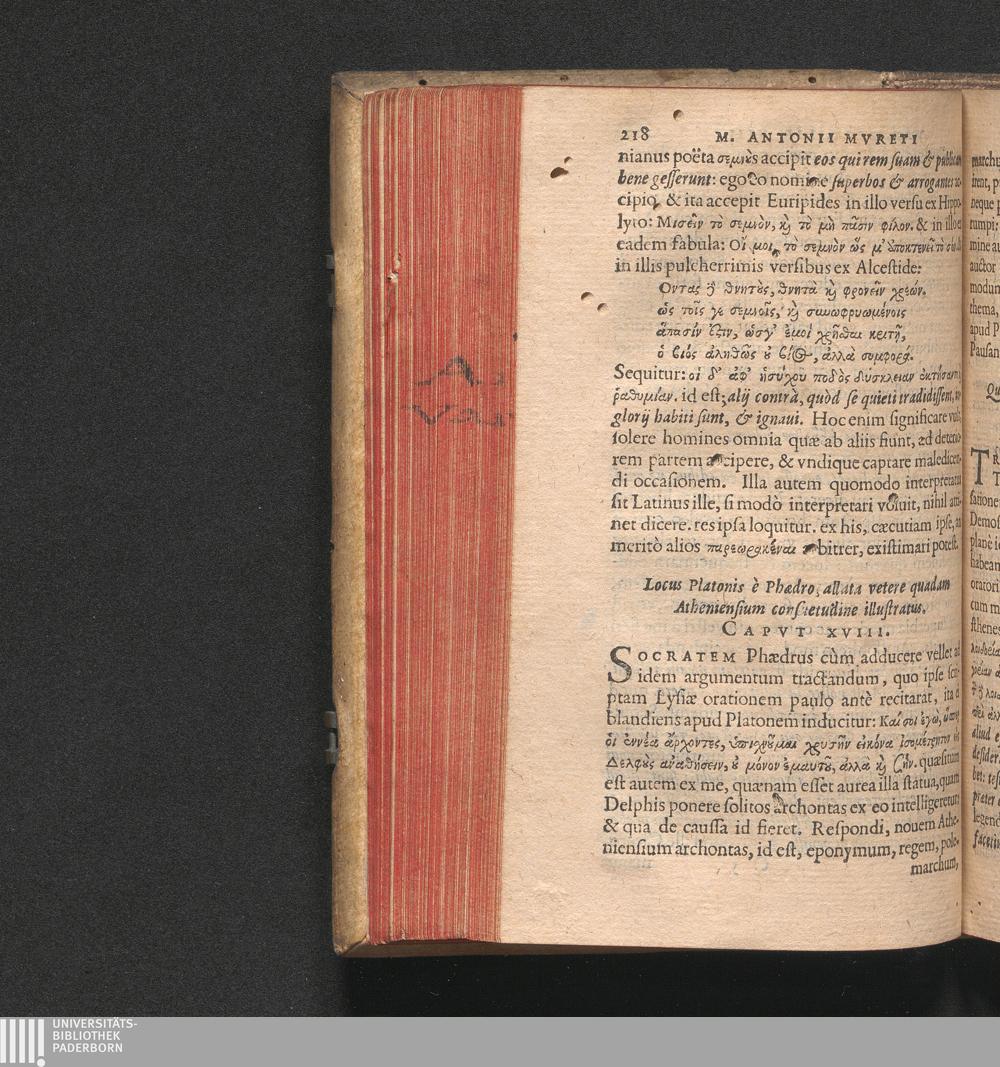 218 M. ANTONII MVRETI
nianus poëta σεμνὺς accipit eos qui rem ſuam & publicam
bene geſſerunt: ego eo nomine ſuperbos & arrogantes ac-
cipio, & ita accepit Euripides in illo verſu ex Hippo-
lyto: Μισεῖν τὸ σεμνὸν, κὶ τὸ μὴ πᾶσιν φίλον. & in illo
eadem fabula: Οἴ μοι, τὸ σεμνὸν ὥς μ' ἀποκτενεῖ τὸ σὸν.
in illis pulcherrimis verſibus ex Alceſtide:
Οντας δὲ θνητοὺς, θνητὰ κὶ φρονεῖν χρεών.
ὡς τοῖς γε σεμνοῖς, κὶ συνωφρυωμένοις
ἅπασίν ἐστιν, ὥσγ' ἐμοὶ χρῆσθαι κριτῇ,
ὁ βιός ἀληθῶς οὐ βίος, ἀλλὰ συμφορά.
Sequitur: οἱ δ' ἀφ' ἡσύχου ποδὸς δύσκλειαν ἐκτήσαντο
ῥαθυμίαν. id eſt; alij contrà, quòd ſe quieti tradidiſſent, in-
glorij habiti ſunt, & ignaui. Hoc enim ſignificare vult,
ſolere homines omnia quæ ab aliis fiunt, ad deterio-
rem partem accipere, & vndique captare maledicen-
di occaſionem. Illa autem quomodo interpretatus
ſit Latinus ille, ſi modò interpretari voluit, nihil atti-
net dicere. res ipſa loquitur. ex his, cæcutiam ipſe, an
meritò alios παρεωρακέναι arbitrer, exiſtimari poteſt.
Locus Platonis è Phædro, allata vetere quadam
Athenienſium conſuetudine illuſtratus.
CAPVT XVIII.
SOCRATEM Phædrus cùm adducere vellet ad
idem argumentum tractandum, quo ipſe ſcri-
ptam Lyſiæ orationem paulo antè recitarat, ita ei
blandiens apud Platonem inducitur: Καί σοι ἐγὼ, ὥσπερ
οἱ ἐννέα ἄρχοντες, ὑπισχνοῦμαι χρυσῆν εἰκόνα ἰσομέτρητον εἰς
Δελφοὺς ἀναθήσειν, οὐ μόνον ἐμαυτοῦ, ἀλλὰ κὶ σήν. quæſitum
eſt autem ex me, quænam eſſet aurea illa ſtatua, quam
Delphis ponere ſolitos archontas ex eo intelligeretur:
& qua de cauſſa id fieret. Reſpondi, nouem Athe-
nienſium archontas, id eſt, eponymum, regem, pole-
marchum,
UNIVERSITÄTS-
BIBLIOTHEK
PADERBORN